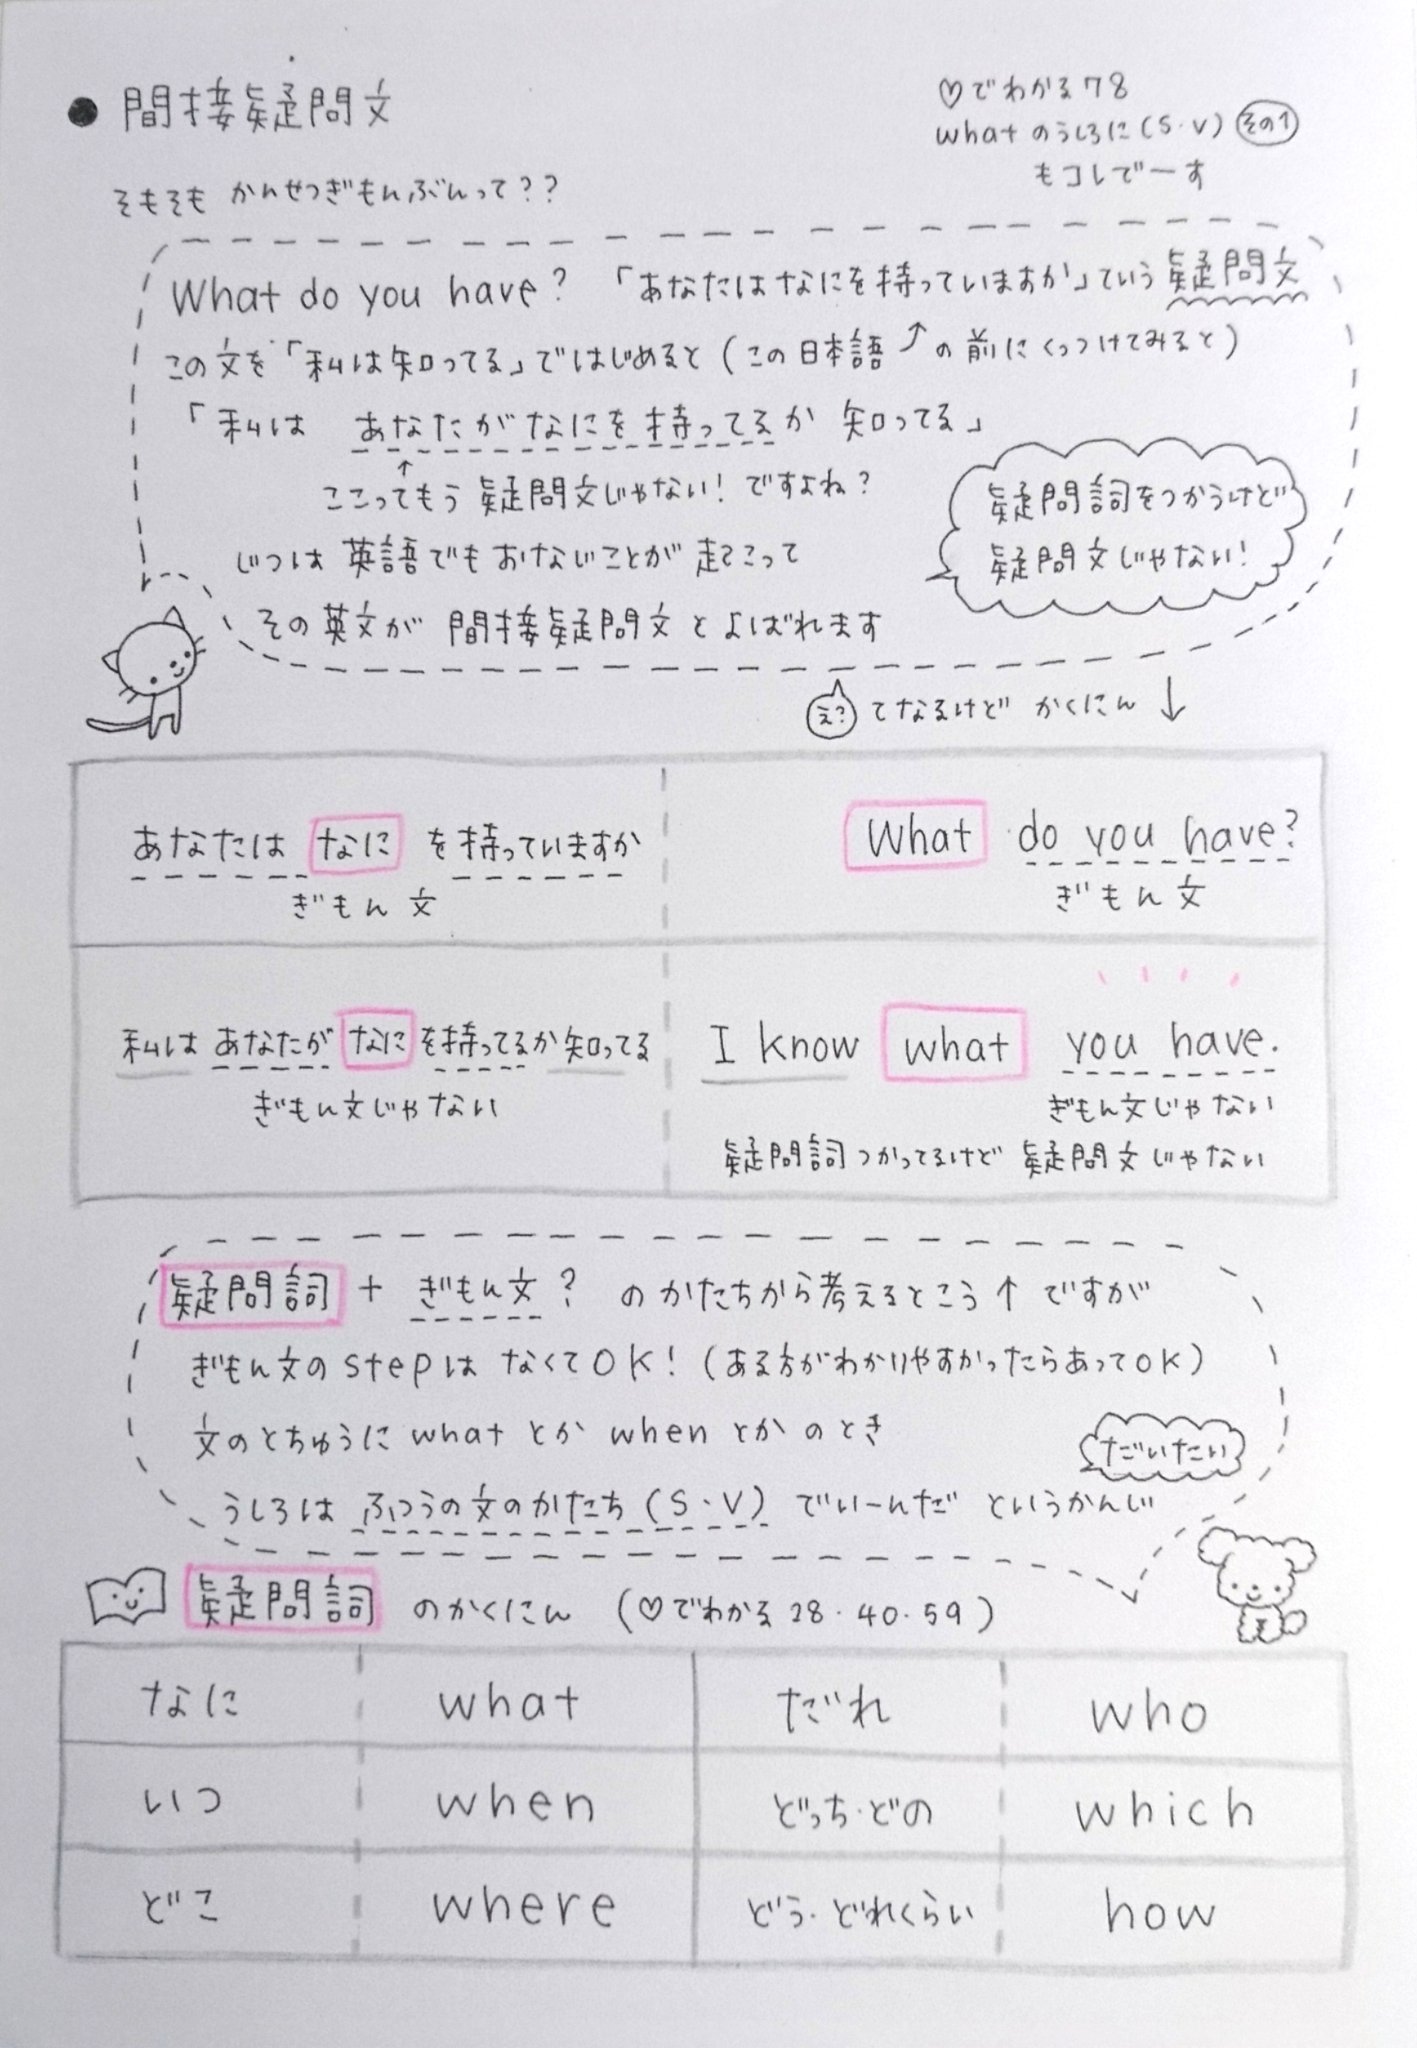 ● 間接疑問文
♡でわかる78
whatのうしろに(S・V) その1
もコレでーす
そもそも かんせつぎもんぶんって??
What do you have? 「あなたはなにを持っていますか」ていう疑問文
この文を「私は知ってる」ではじめると(この日本語↑の前にくっつけてみると)
「私は あなたがなにを持ってるか 知ってる」
↑
ここってもう疑問文じゃない!ですよね?
疑問詞をつかうけど
疑問文じゃない!
じつは英語でもおなじことが起こって
その英文が間接疑問文とよばれます
え? てなるけど かくにん ↓
あなたは なに を持っていますか
ぎもん文
What do you have?
ぎもん文
私は あなたが なに を持ってるか 知ってる
ぎもん文じゃない
I know what you have.
ぎもん文じゃない
疑問詞つかってるけど 疑問文じゃない
疑問詞 + ぎもん文? のかたちから考えるとこう↑ですが
ぎもん文のstepはなくてOK!(ある方がわかりやすかったらあってOK)
文のとちゅうにwhatとかwhenとかのとき
だいたい
うしろは ふつうの文のかたち(S・V) でいーんだ というかんじ
疑問詞 のかくにん (♡でわかる28・40・59)
なに what だれ who
いつ when どっち・どの which
どこ where どう・どれくらい how